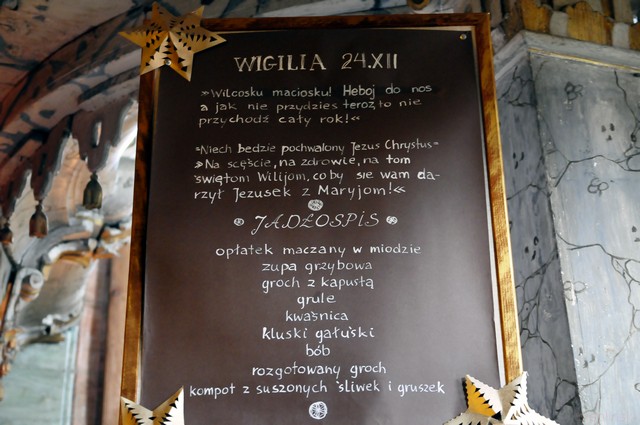 WIGILIA 24.XII
»Wilcosku maciosku! Heboj do nos
a jak nie przydzies teroz, to nie
przychodź cały rok!«
»Niech bedzie pochwolony Jezus Chrystus«
»Na scęście, na zdrowie, na tom
świętom Wilijom, co by sie wam da-
rzył Jezusek z Maryjom!«
JADŁOSPIS
opłatek maczany w miodzie
zupa grzybowa
groch z kapustą
grule
kwaśnica
kluski gałuśki
bób
rozgotowany groch
kompot z suszonych śliwek i gruszek